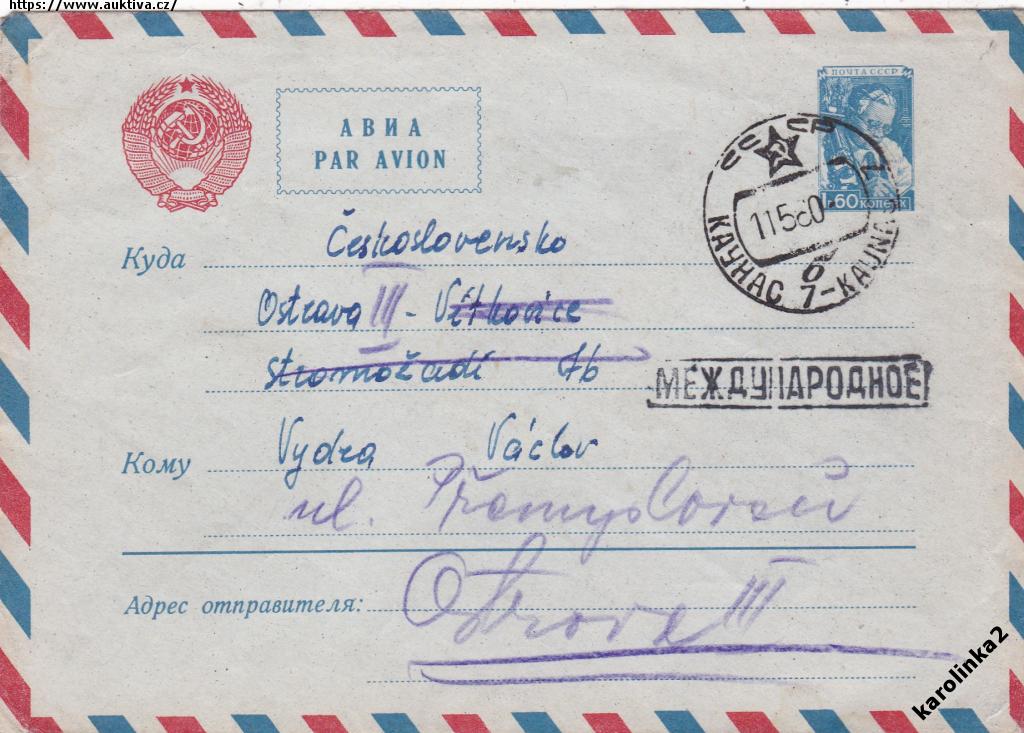 https://www.auktiva.cz/
ПОЧТА СССР
АВИА
PAR AVION
1р.60 копеек
СССР
11560
КАУНАС 7-KAUNAS 7
б
Куда Československo
Ostrava III - Vítkovice
stromořadí 76
МЕЖДУНАРОДНОЕ
Кому Vydra Václav
ul. Přemyslovců
Адрес отправителя:
Ostrava III
karolinka2